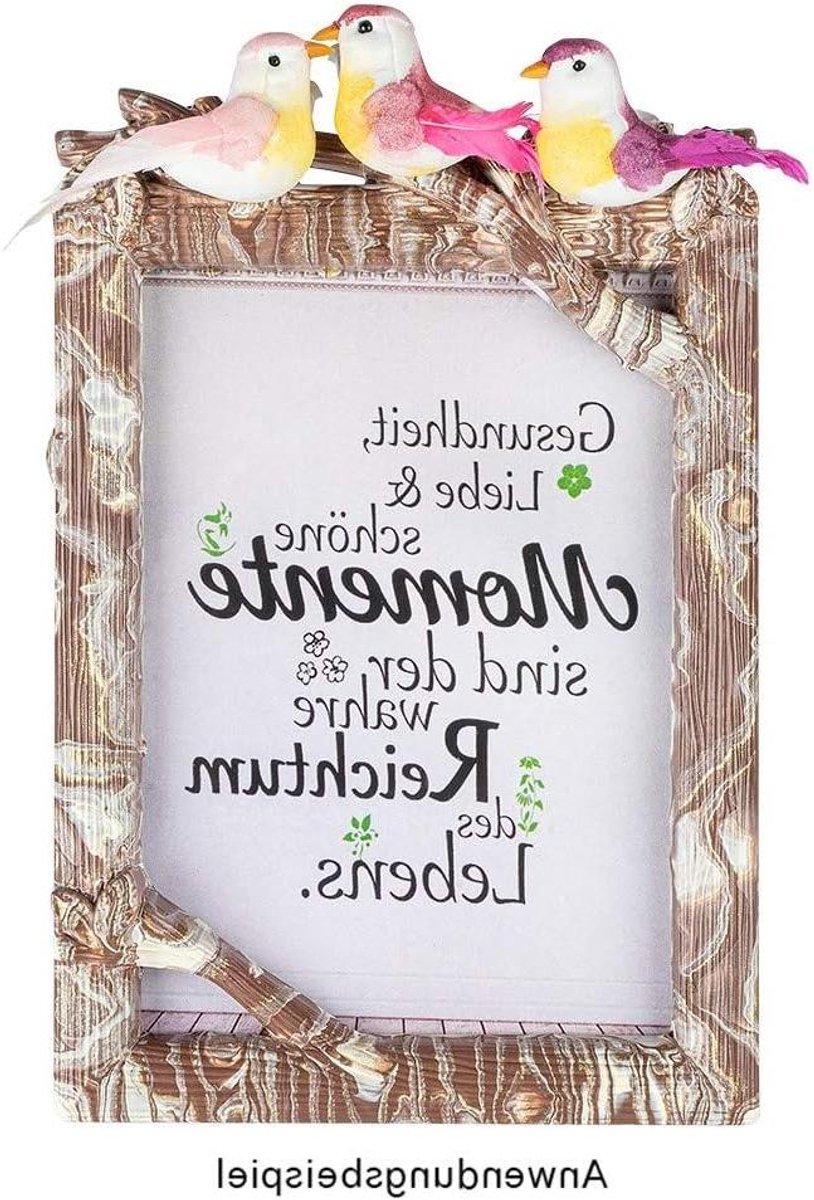 Gesundheit,
Liebe &
schöne
Momente
sind der
wahre
Reichtum
des
Lebens.
Anwendungsbeispiel